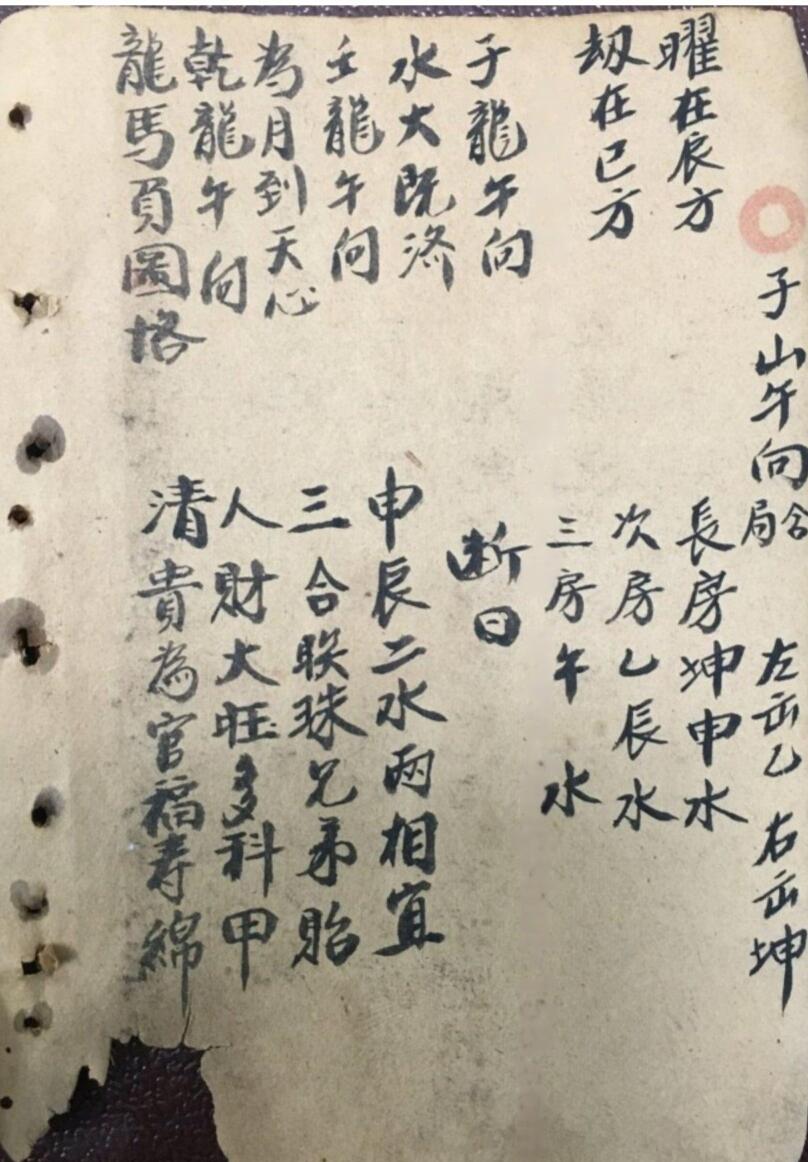 子山午向合局 左缶乙 右缶坤
曜在辰方
長房坤申水
刼在巳方
次房乙辰水
三房午水
子龍午向
水火既济
壬龍午向
為月到天心
乾龍午向
龍馬負圖格
断曰
申辰二水両相宜
三合联珠兄弟貽
人財大旺多科甲
清貴為官福寿綿